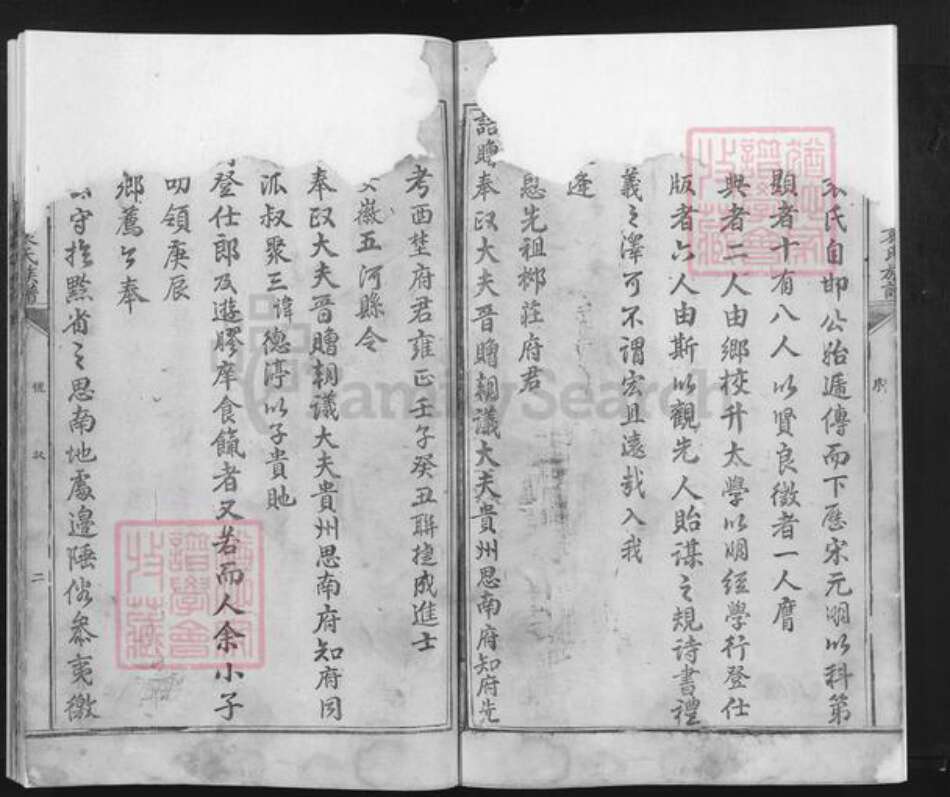 氏自邯公始遞傳而下歷宋元明以科第
顯者十有八人以賢良徵者一人膺
典者二人由鄉校升太學以明經學行登仕
版者六人由斯以觀先人貽謀之規詩書禮
義之澤可不謂宏且遠哉入我
逢
恩先祖梛莊府君
誥贈奉政大夫晉贈朝議大夫貴州思南府知府先
考西埜府君雍正壬子癸丑聯捷成進士
徽五河縣令
奉政大夫晉贈朝議大夫貴州思南府知府同
派叔聚三諱德渟以子貴貤
登仕郎及遊膠庠食餼者又若而人余小子
叨領庚辰
鄉薦今奉
守擔黔省之思南地處邊陲俗參夷徼
序
二
FamilySearch